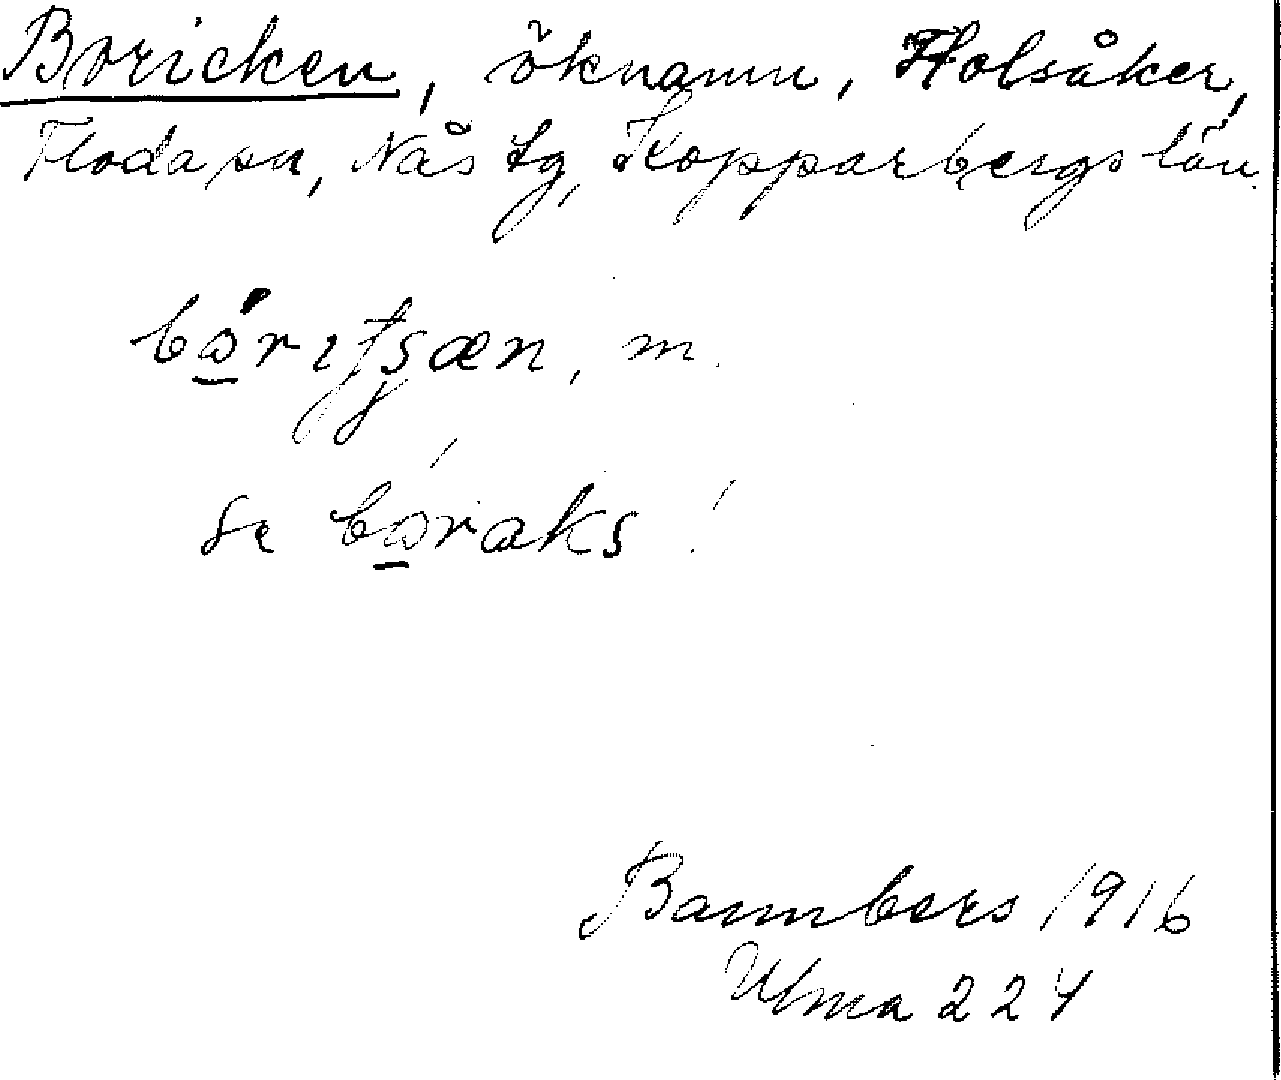 Boricken, öknamn, Holsåker,
Floda sn, Nås tg, Kopparbergs län.
m.
se båraks!
Bannbers 1916
Ulma 224